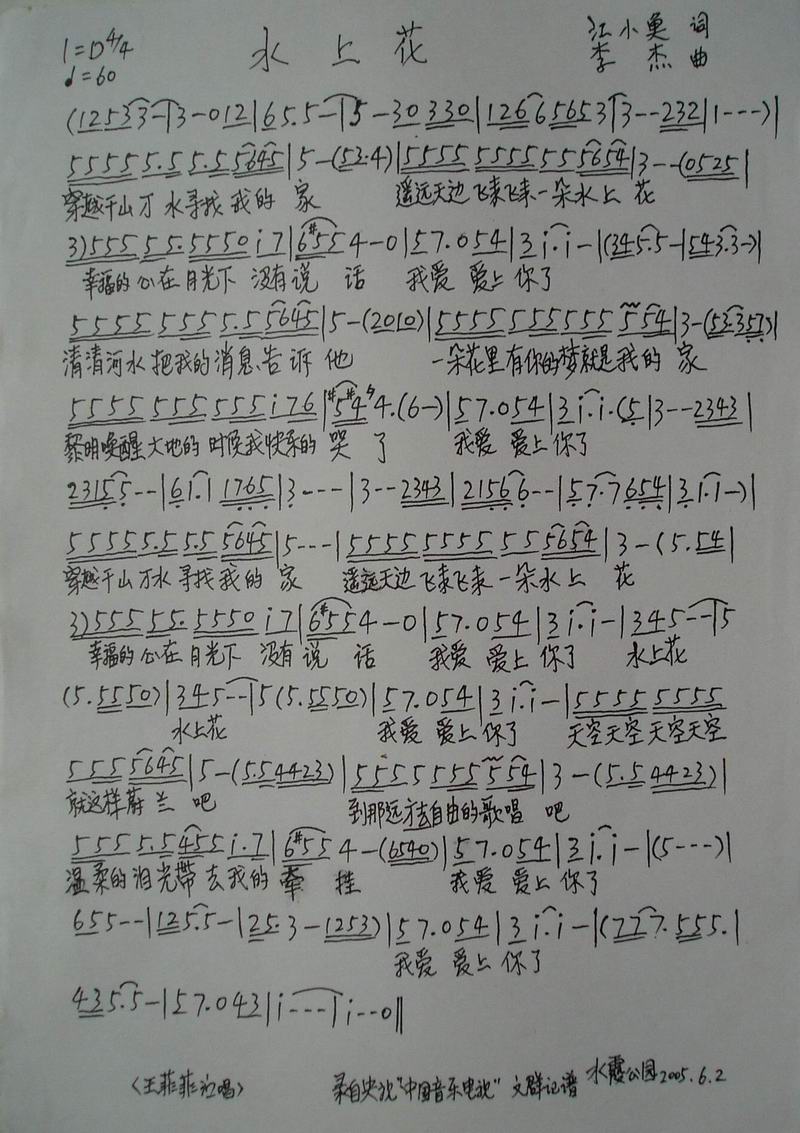 1=D 4/4 水上花 江小鱼 词
♩=60 李杰 曲
(12533-|3-012|65.5-|5-30330|12665653|3--232|1---)|
55555.55.55645|5-(53.4)|55555555555654|3--(0525|
穿越千山万水寻找我的家 遥远天边飞来飞来一朵水上花
3)55555.5550i7|6#554-0|57.054|3i.i-|(345.5-|543.3-)|
幸福的心在月光下没有说话 我爱爱上你了
55555555.55645|5-(2010)|55555555555554|3-(53357)|
清清河水把我的消息告诉他 一朵花里有你的梦就是我的家
5555555555i76|#5#44.(6-)|57.054|3i.i.(5|3--2343|
黎明唤醒大地的时候我快乐的哭了 我爱爱上你了
23155--|61.11765|3----|3--2343|215666--|57.7654|31.1-)|
55555.55.55645|5---|55555555555654|3-(5.54|
穿越千山万水寻找我的家 遥远天边飞来飞来一朵水上花
3)55555.5550i7|6#554-0|57.054|3i.i-|345--|5
幸福的心在月光下没有说话 我爱爱上你了 水上花
(5.5550)|345--|5(5.5550)|57.054|3i.i-|55555555
水上花 我爱爱上你了 天空天空天空天空
5555645|5-(5.54423)|5555555554|3-(5.54423)|
就这样蔚兰吧 到那远方去自由的歌唱吧
55555.5455i.7|6#554-(6540)|57.054|3i.i-|(5---)|
温柔的泪光带去我的牵挂 我爱爱上你了
655--|125.5-|25.3-1253)|57.054|3i.i-|(777.555.|
我爱爱上你了
435.5-|57.043|i---|i--0‖
(王菲菲演唱) 录自央视"中国音乐电视" 文群记谱 水霞公园2005.6.2